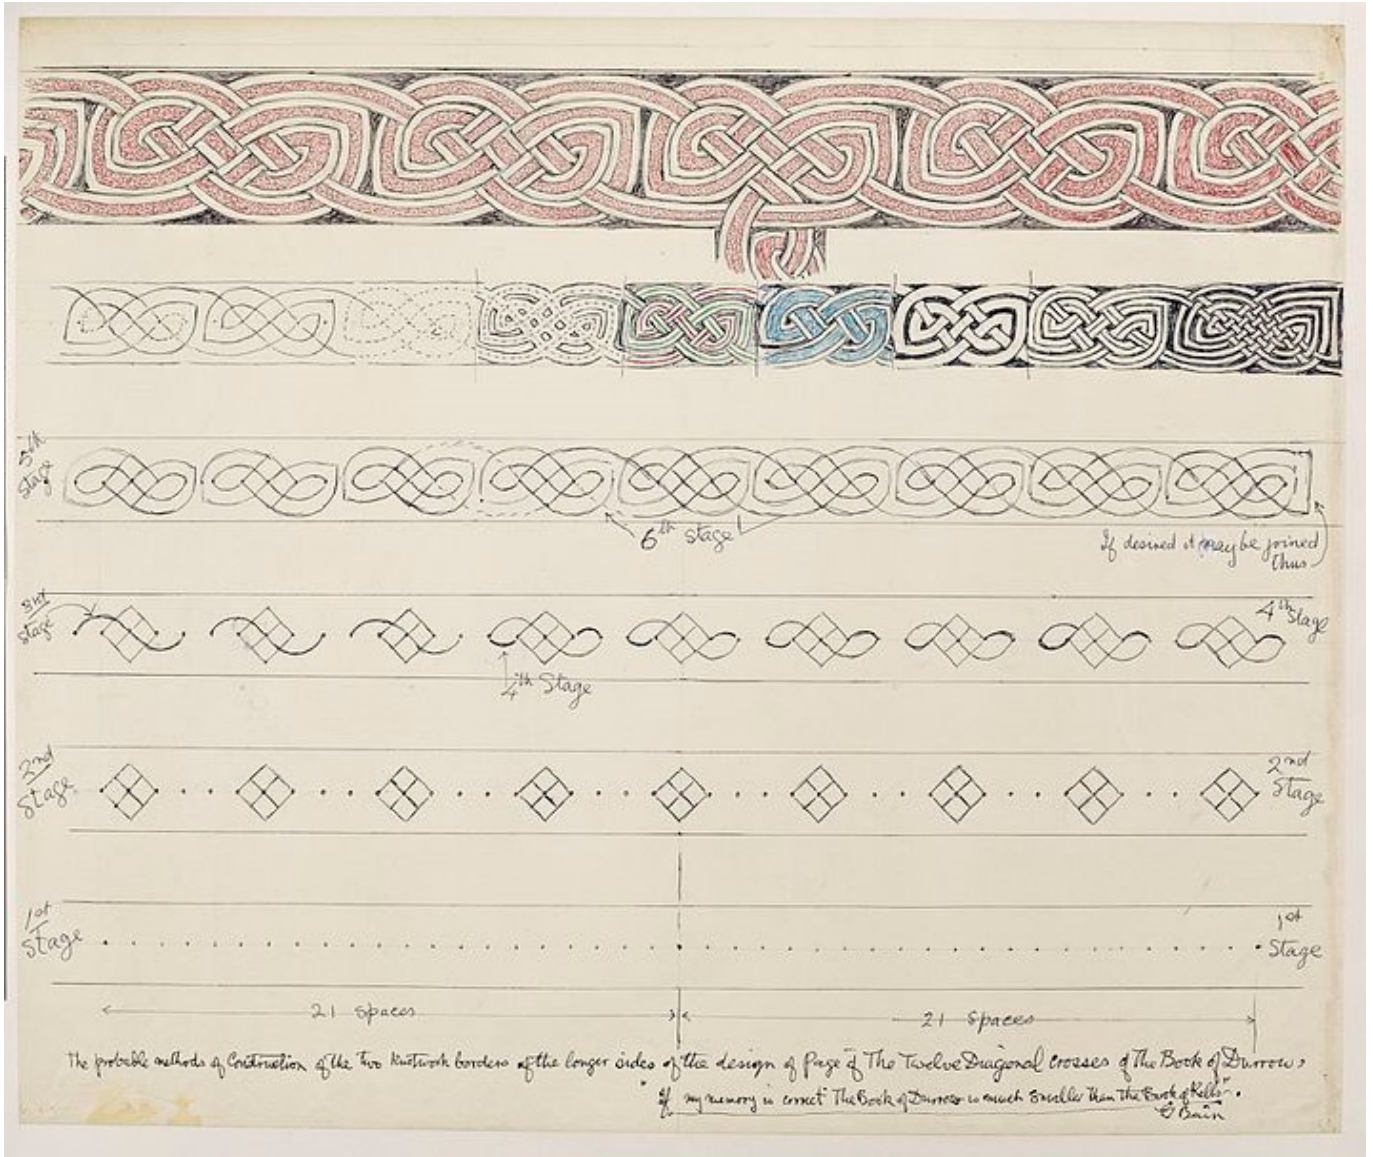 5th
Stage
6th Stage
If desired it may be joined
thus
3rd
Stage
4th Stage
4th Stage
2nd
Stage
2nd
Stage
1st
Stage
1st
Stage
21 Spaces
21 Spaces
The probable methods of Construction of the two Knotwork borders of the longer sides of the design of Page of The Twelve Diagonal Crosses of The Book of Durrow,
"If my memory is correct" The Book of Durrow is much smaller than the Book of Kells".
G Bain